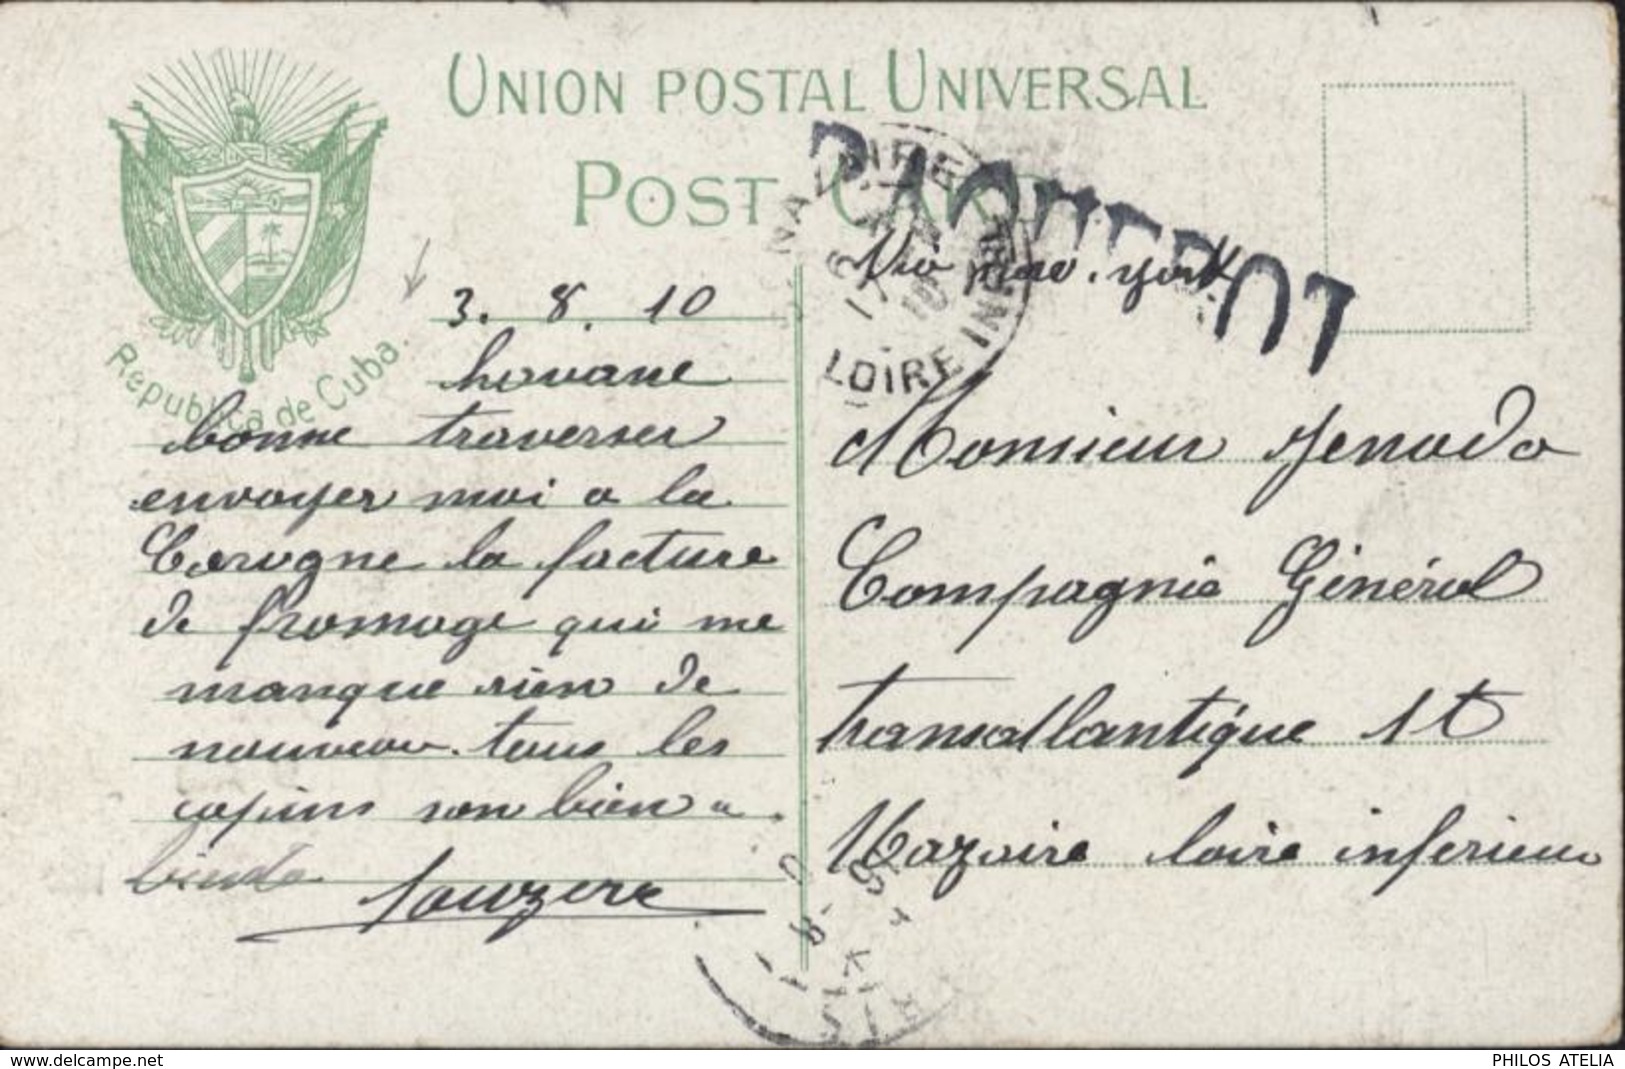 UNION POSTAL UNIVERSAL
POST CARD
Republica de Cuba.
PAQUEBOT
NAZAIRE
LOIRE INFRE
3. 8. 10
havane
bonne traverser
envoyer moi a la
Corogne la facture
de fromage qui me
manque rien de
nouveau. tous les
copins son bien a
Via new. york
Monsieur
Compagnie Général
transatlantique 1t
Nazaire loire inferieu
www.delcampe.net
PHILOS ATELIA